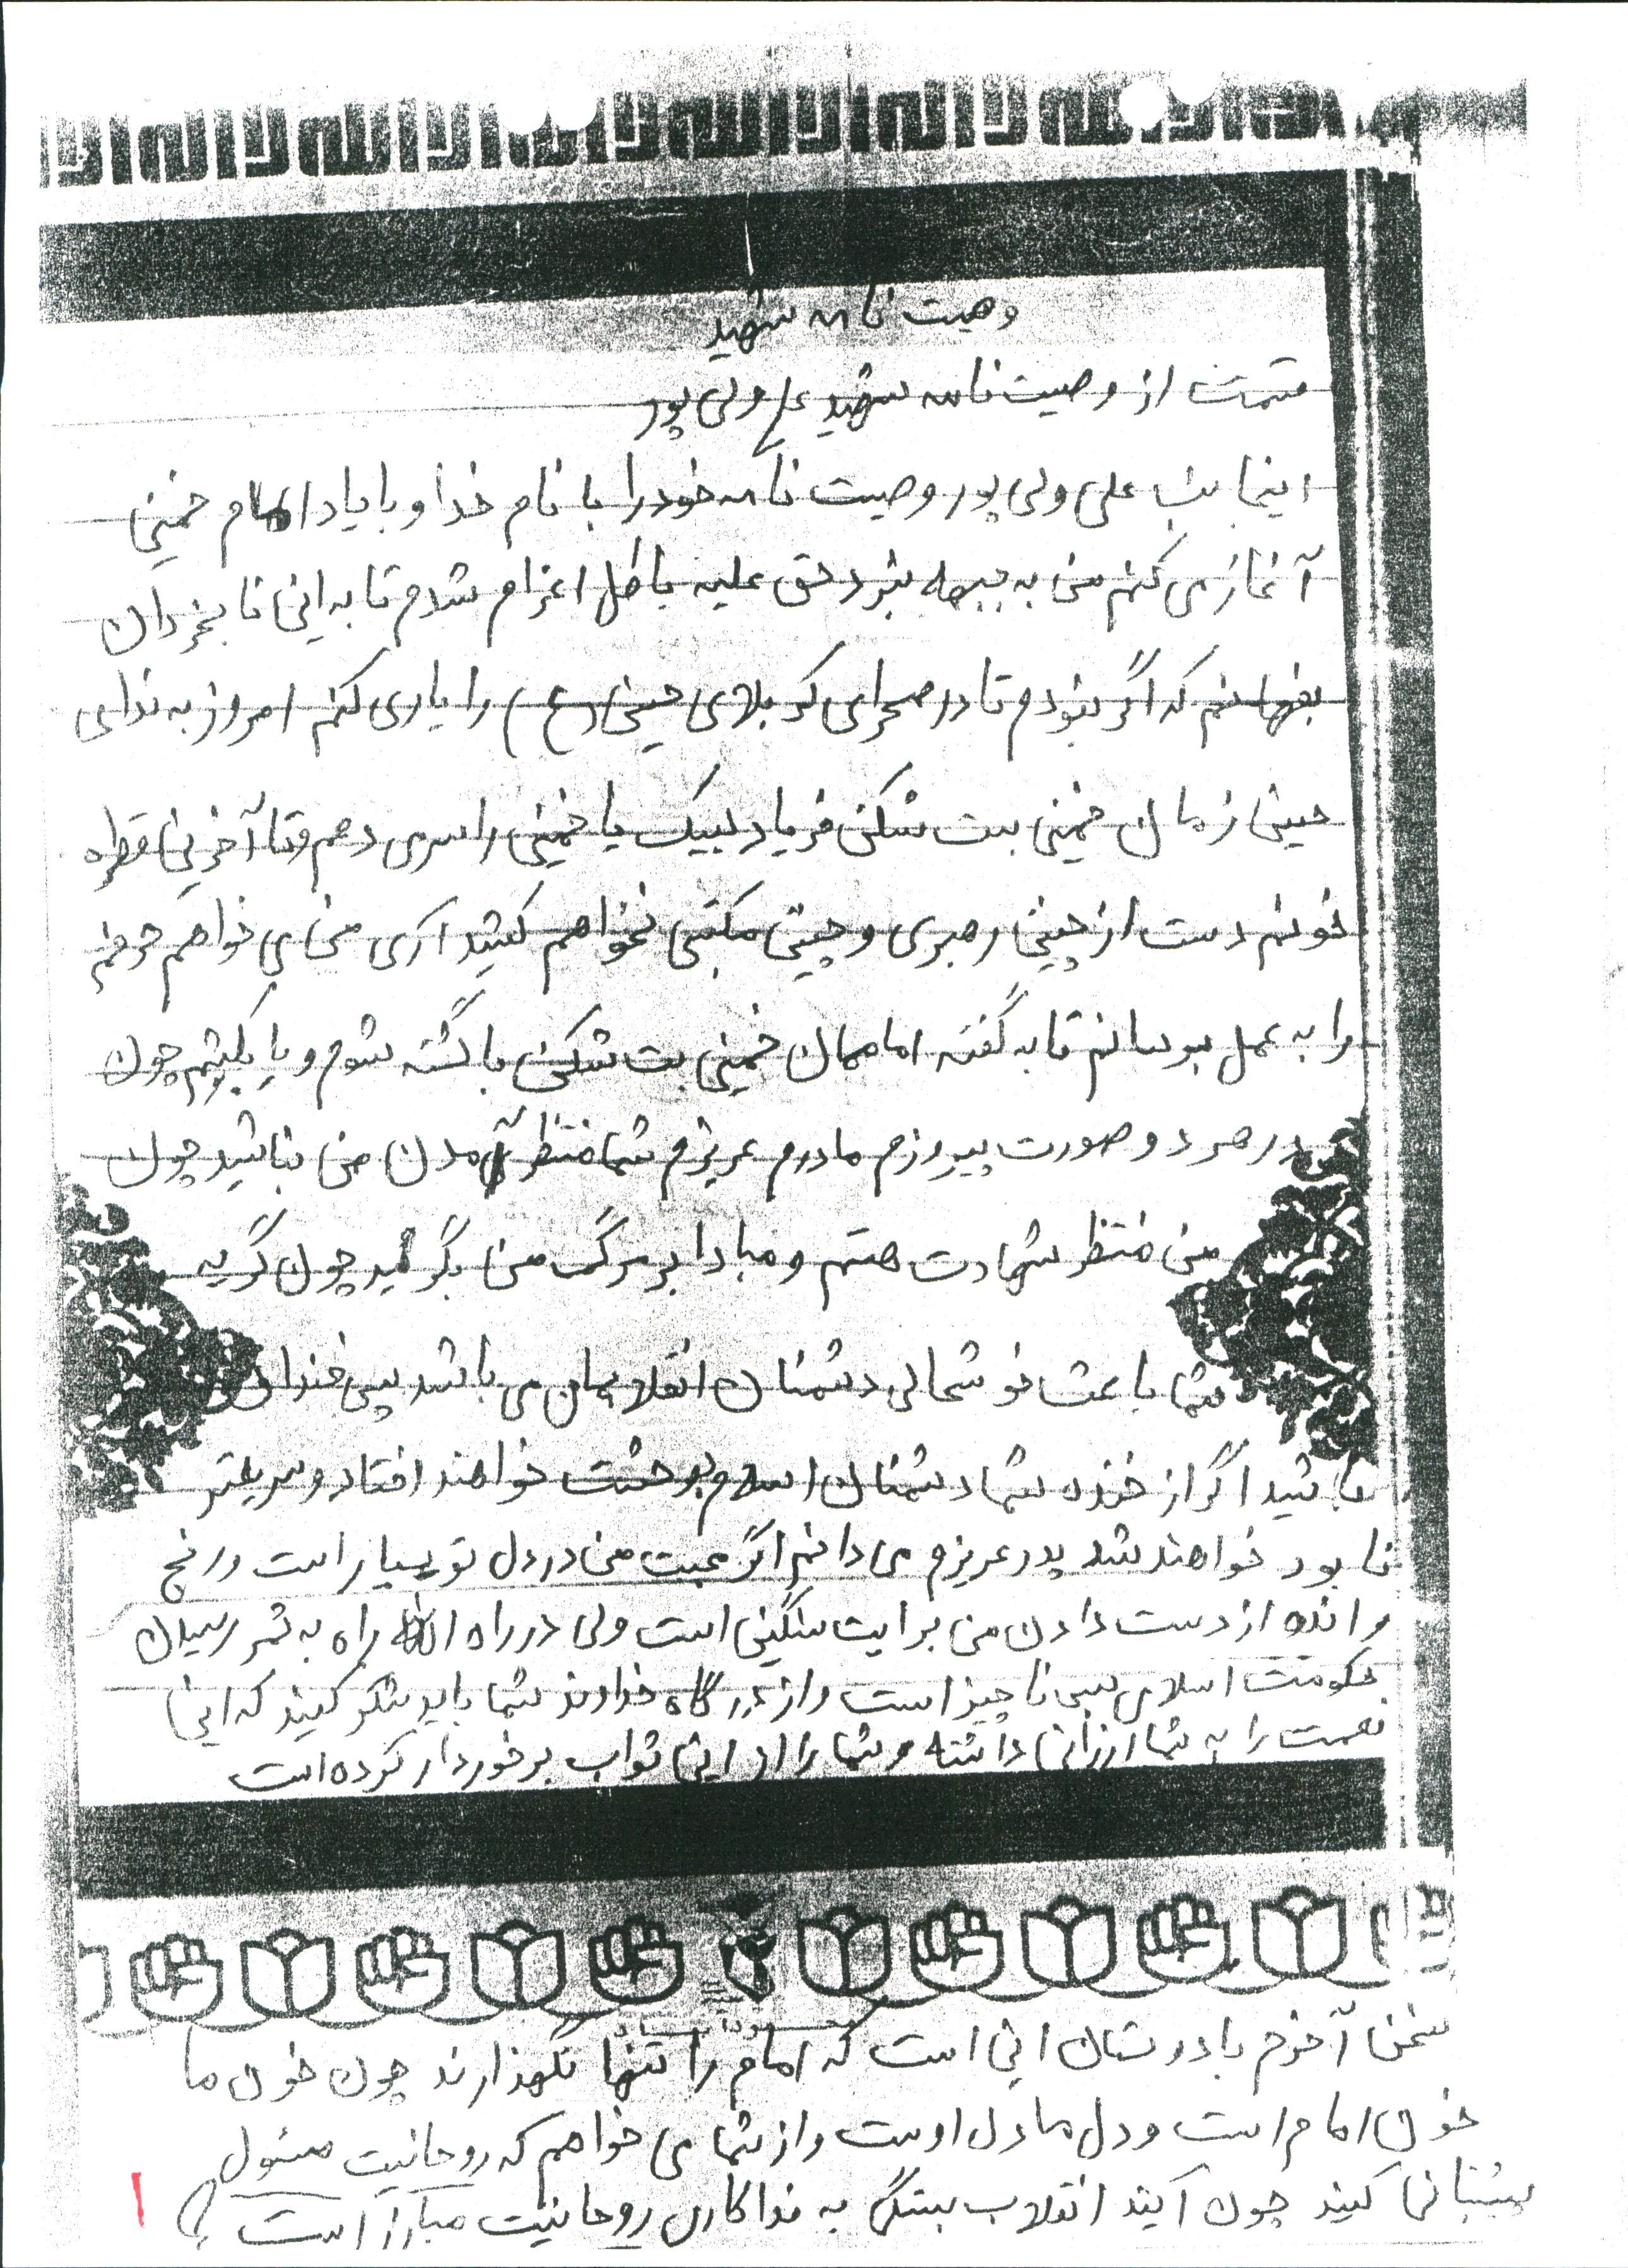 وصیت نامه شهید
قسمت از وصیت نامه شهید علی ولی پور
اینجانب علی ولی پور وصیت نامه خود را با نام خدا و با یاد امام خمینی
آغاز می کنم من به جبهه نبرد حق علیه باطل اعزام شدم تا به این نابخردان
بفهمانم که اگر نبودم تا در صحرای کربلای حسین (ع) را یاری کنم امروز به ندای
حسین زمان خمینی بت شکن فریاد لبیک یا خمینی را سر می دهم و تا آخرین قطره
خونم دست از چنین رهبری و چنین مکتبی نخواهم کشید آری من می خواهم حرفم
را به عمل برسانم تا به گفته اماممان خمینی بت شکن یا کشته شوم و یا بکشم چون
در هر دو صورت پیروزم مادرم عزیزم شما منتظر آمدن من نباشید چون
من منتظر شهادت هستم و مبادا بر مرگ من بگریید چون گریه
شما باعث خوشحالی دشمنان انقلابمان می باشد پس خندان
باشید اگر از خنده شما دشمنان اسلام بوحشت خواهند افتاد و سریعتر
نابود خواهند شد پدر عزیزم می دانم اگر محبت من در دل تو بسیار است و رنج
و اندوه از دست دادن من برایت سنگین است ولی در راه الله راه به ثمر رسیدن
حکومت اسلامی بسی ناچیز است و از درگاه خداوند شما باید شکر کنید که این
نعمت را به شما ارزانی داشته و شما را از این ثواب برخوردار کرده است
سخن آخرم با دوستان این است که امام را تنها نگهذارند چون خون ما
خون امام است و دل ما دل اوست و از شما می خواهم که روحانیت مسئول
پشتبانی کنید چون آیند انقلاب بستگی به فداکاری روحانیت مبارز است
۱